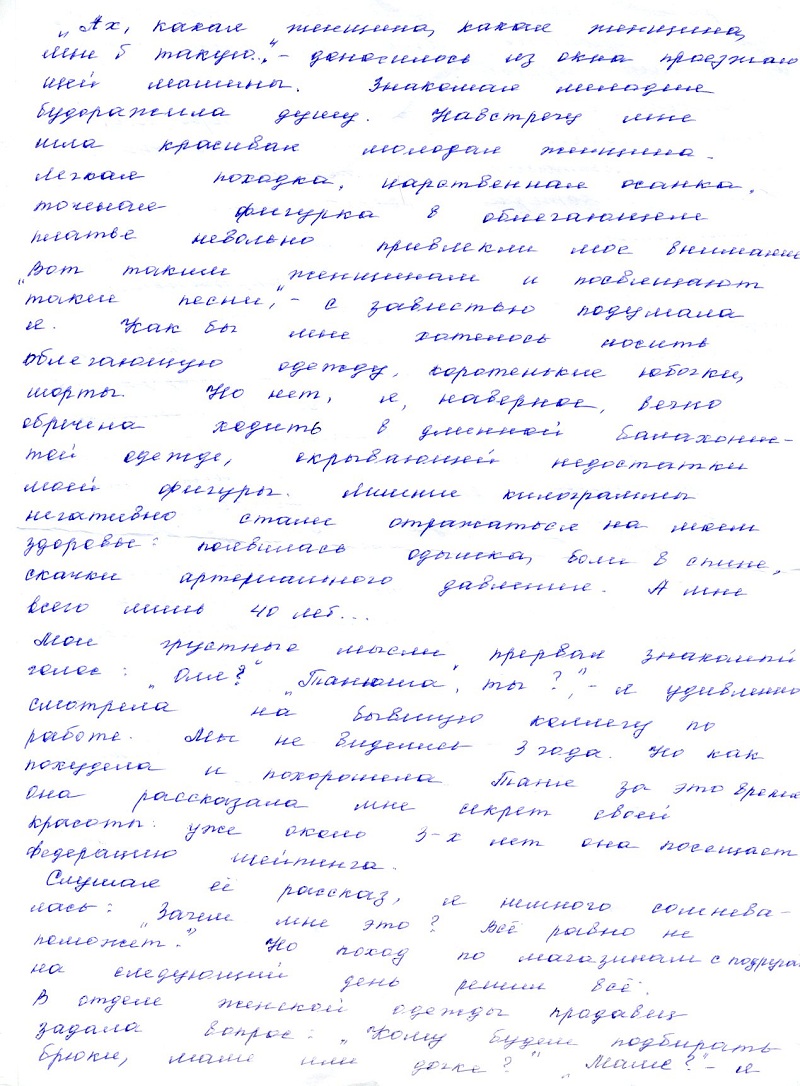 „Ах, какая женщина, какая женщина,
мне б такую.," – доносилось из окна проезжаю
щей машины. Знакомая мелодия
будоражила душу. Навстречу мне
шла красивая молодая женщина.
Легкая походка, царственная осанка,
точеная фигурка в облегающем
платье невольно привлекли мое внимание
„Вот таким женщинам и посвящают
такие песни", – с завистью подумала
я. Как бы мне хотелось носить
облегающую одежду, коротенькие юбочки,
шорты. Но нет, я, наверное, вечно
обречена ходить в длинной балахонис-
той одежде, скрывающей недостатки
моей фигуры. Лишние килограммы
негативно стали отражаться на моем
здоровье: появилась одышка, боли в спине,
скачки артериального давления. А мне
всего лишь 40 лет...
Мои грустные мысли прервал знакомый
голос: „Оля?" „Танюша, ты?", – я удивленно
смотрела на бывшую коллегу по
работе. Мы не виделись 3 года. Но как
похудела и похорошела Таня за это время
Она рассказала мне секрет своей
красоты: уже около 3-х лет она посещает
федерацию шейпинга.
Слушая её рассказ, я немного сомнева-
лась: „Зачем мне это? Всё равно не
поможет." Но поход по магазинам с подругой
на следующий день решил всё.
В отделе женской одежды продавец
задала вопрос: „Кому будем подбирать
брюки, маме или дочке?" „Маме?" – я